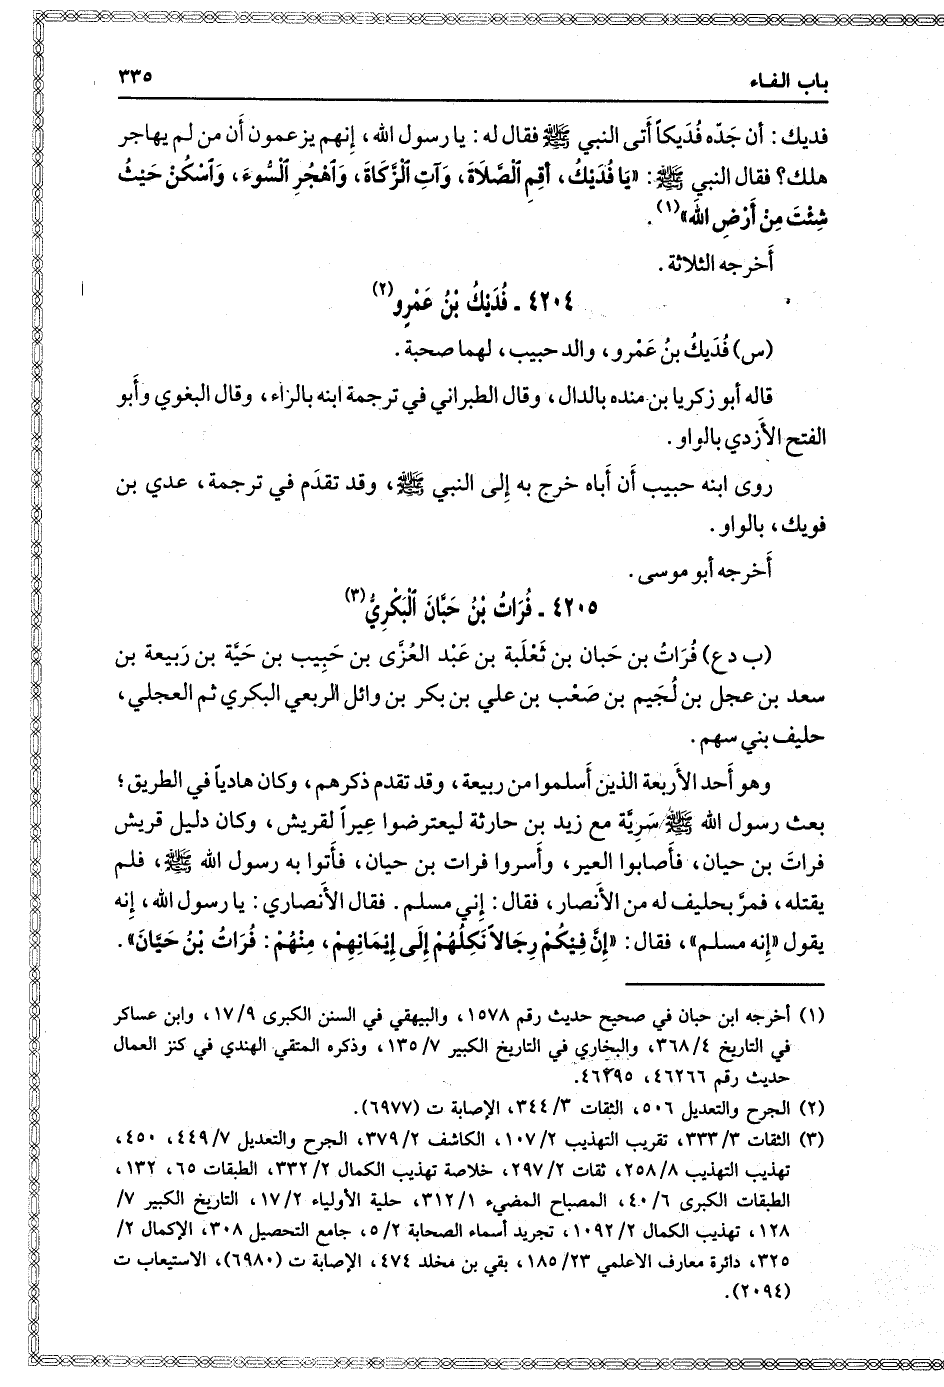 باب الفاء
٣٣٥
فديك: أن جَدّه فُدَيكاً أَتى النبي ﷺ فقال له: يا رسول الله، إنهم يزعمون أَن من لم يهاجر
هلك؟ فقال النبي ﷺ: «يَا فُدَيْكُ، أَقِمِ ٱلْصَّلَاةَ، وَآتِ ٱلْزَّكَاةَ، وَٱهْجُرِ ٱلْسُّوءَ، وَٱسْكُنْ حَيْثُ
شِئْتَ مِنْ أَرْضِ اللَّهِ»(١).
أَخرجه الثلاثة.
٤٢٠٤ ـ فُدَيْكُ بْنُ عَمْرِو(٢)
(س) فُدَيكُ بنُ عَمْرو، والد حبيب، لهما صحبة.
قاله أبو زكريا بن منده بالدال، وقال الطبراني في ترجمة ابنه بالراء، وقال البغوي وأَبو
الفتح الأَزدي بالواو.
روى ابنه حبيب أَن أَباه خرج به إِلى النبي ﷺ، وقد تقدَم في ترجمة، عدي بن
فويك، بالواو.
أَخرجه أبو موسى.
٤٢٠٥ ـ فُرَاتُ بْنُ حَبَّانَ ٱلْبَكْرِيُّ(٣)
(ب د ع) فُرَاتُ بن حَبان بن ثَعْلَبة بن عَبْد العُزَّى بن حَبِيب بن حَيَّة بن رَبيعة بن
سعد بن عجل بن لُجَيم بن صَعْب بن علي بن بكر بن وائل الربعي البكري ثم العجلي،
حليف بني سهم.
وهو أَحد الأَربعة الذين أَسلموا من ربيعة، وقد تقدم ذكرهم، وكان هادياً في الطريق؛
بعث رسول الله ﷺ سَرِيَّة مع زيد بن حارثة ليعترضوا عِيراً لقريش، وكان دليل قريش
فراتَ بن حيان، فأَصابوا العير، وأَسروا فرات بن حيان، فأَتوا به رسول الله ﷺ، فلم
يقتله، فمرَّ بحليف له من الأَنصار، فقال: إِني مسلم. فقال الأَنصاري: يا رسول الله، إنه
يقول «إِنه مسلم»، فقال: «إِنَّ فِيْكُمْ رِجَالاً نَكِلُهُمْ إِلَى إِيْمَانِهِمْ، مِنْهُمْ: فُرَاتُ بْنُ حَيَّانَ».
(١) أخرجه ابن حبان في صحيح حديث رقم ١٥٧٨، والبيهقي في السنن الكبرى ١٧/٩، وابن عساكر
في التاريخ ٣٦٨/٤، والبخاري في التاريخ الكبير ١٣٥/٧، وذكره المتقي الهندي في كنز العمال
حديث رقم ٤٦٢٦٦، ٤٦٢٩٥.
(٢) الجرح والتعديل ٥٠٦، الثقات ٣٤٤/٣، الإصابة ت (٦٩٧٧).
(٣) الثقات ٣٣٣/٣، تقريب التهذيب ١٠٧/٢، الكاشف ٣٧٩/٢، الجرح والتعديل ٤٤٩/٧، ٤٥٠،
تهذيب التهذيب ٢٥٨/٨، ثقات ٢٩٧/٢، خلاصة تهذيب الكمال ٣٣٢/٢، الطبقات ٦٥، ١٣٢،
الطبقات الكبرى ٤٠/٦، المصباح المضيء ٣١٢/١، حلية الأولياء ١٧/٢، التاريخ الكبير ٧/
١٢٨، تهذيب الكمال ١٠٩٢/٢، تجريد أسماء الصحابة ٥/٢، جامع التحصيل ٣٠٨، الإكمال ٢/
٣٢٥، دائرة معارف الاعلمي ١٨٥/٢٣، بقي بن مخلد ٤٧٤، الإصابة ت (٦٩٨٠)، الاستيعاب ت
(٢٠٩٤).